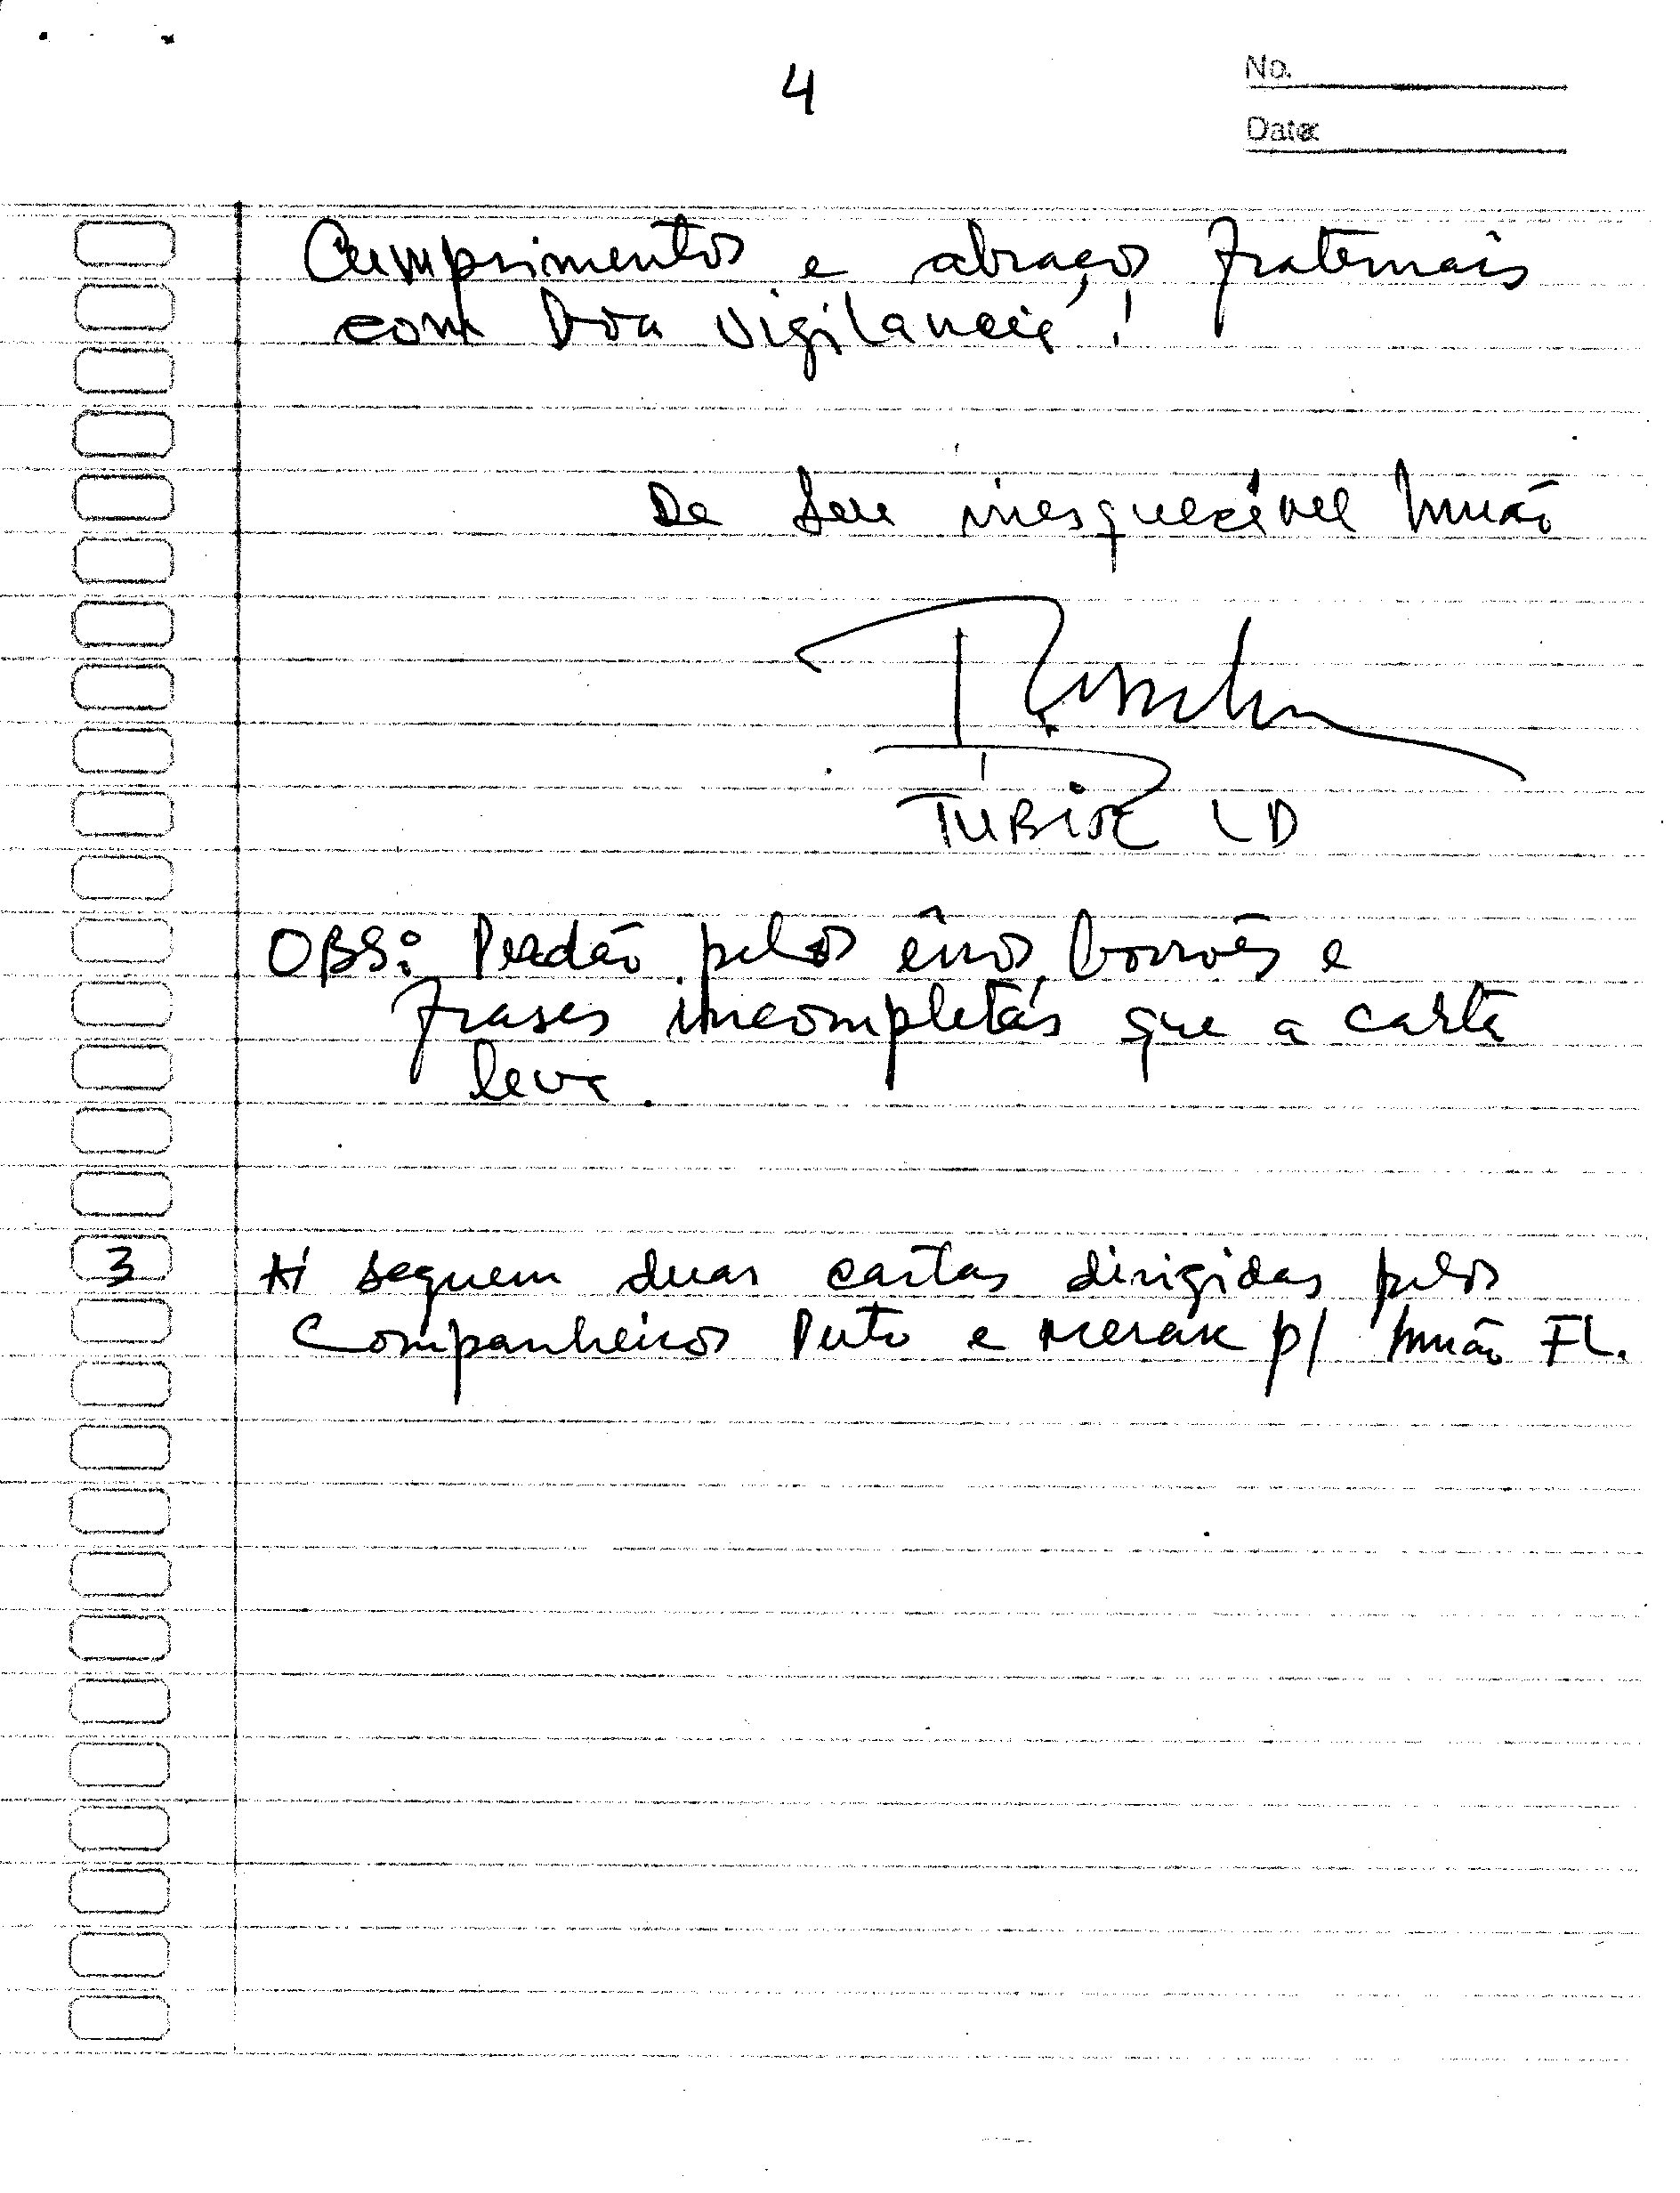 4
No.
Date:
Cumprimentos e abraços fraternais
com boa vigilancia!
De seu inesquecível Irmão
TUBIOR LD
OBS: Perdão pelos êrros, borrões e
frases incompletas que a carta
leva.
3 Aí seguem duas cartas dirigidas pelos
Companheiros Puto e Merak p/ Irmão FL.